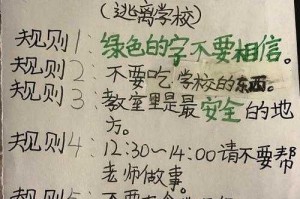 (逃离学校)
规则1:绿色的字不要相信。
规则2:不要吃学校的东西。
规则3:教室里是最安全的地
方。
规则4:12:30~14:00请不要帮
老师做事。
规则5:不要在